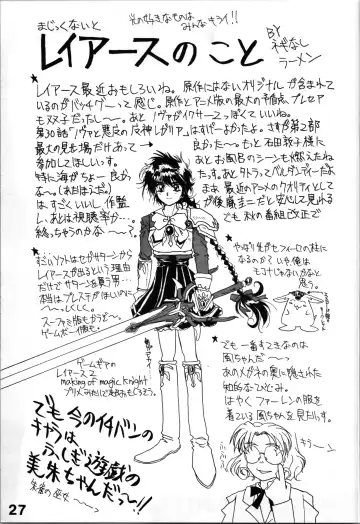 まじっくないと
光の好きなものは
みんなキライ!!
レイアースのこと
BY
ネギなし
ラーメン
レイアース最近おもしろいね。原作にはないオリジナルが含まれて
いるのがバッチグーって感じ。原作とアニメ版の最大の相違点、プレセア
も双子だったし〜。あと
第30話「ノヴァと悪夢の魔神レガリア」はすげーよかったよ。さすが第2部
最大の見せ場だけあって
良かった〜。もっと石田敦子様に
参加してほしいっす。
あとお風呂のシーンも燃えたね
特に海がちょー良か
な〜。
は、すごくいいし作監
まあ、最近のアニメのクオリティとして
し、あとは視聴率か…。
が後藤圭二だと安心して見れる
終っちゃうのか〜
でも秋の番組改正で
やっぱり光がセフィーロの柱に
なるのか?いや俺は
モコナじゃないかなと
思う。
レイアースが出るという理由
だけでサターンを買う男…
本当はプレステがほしいのに
〜。しくしく。
スーファミ版もかうど〜。
ゲームボーイ版も。
ゲームギアの
レイアース2
making of magic knight
でも一番すきなのは
風ちゃんだ〜っ
あのメガネの奥に隠された
知的なひとみ。
はやくファーレンの服を
着ている風ちゃんを見たいっす。
でも今のイチバンの
キャラは
ふしぎ遊戯の
美朱ちゃんだっ〜!!
朱雀の巫女〜
27